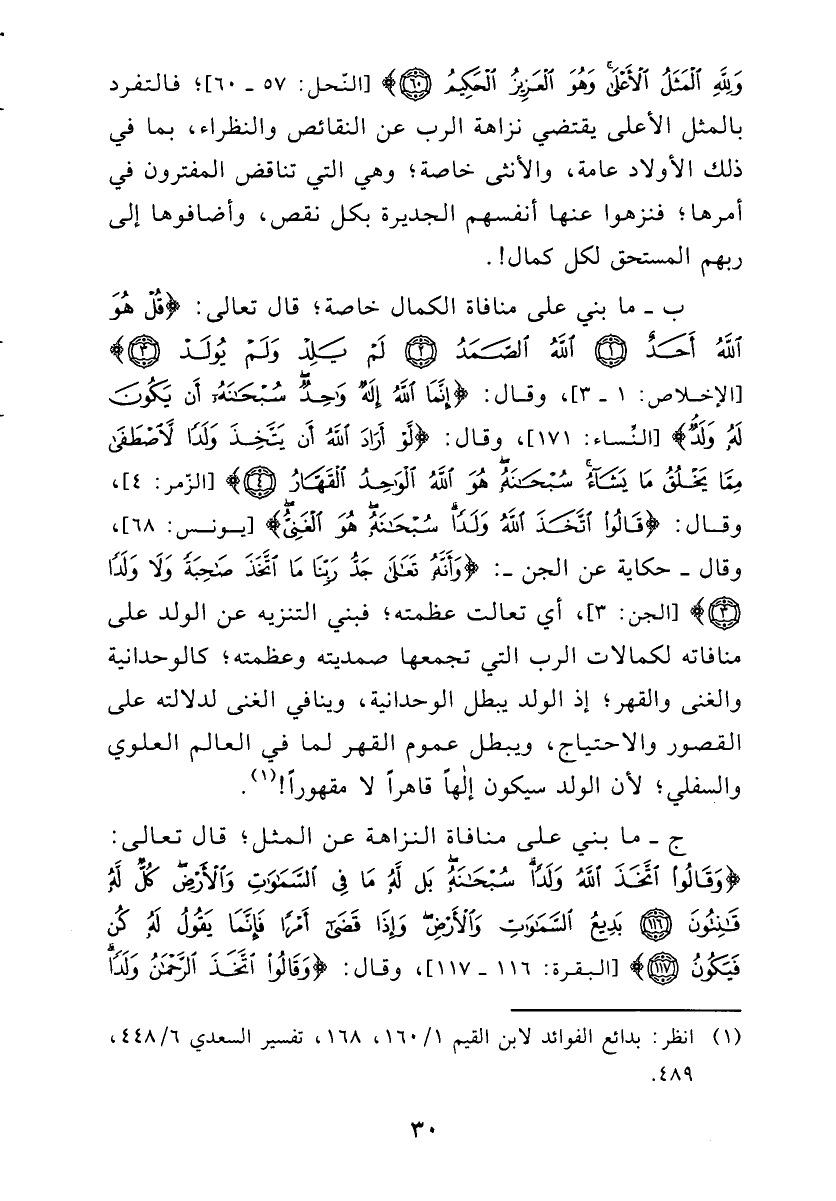 وَلِلَّهِ ٱلْمَثَلُ ٱلْأَعْلَىٰ ۚ وَهُوَ ٱلْعَزِيزُ ٱلْحَكِيمُ ۝٦٠﴾ [النّحل: ٥٧ ـ ٦٠]؛ فالتفرد
بالمثل الأعلى يقتضي نزاهة الرب عن النقائص والنظراء، بما في
ذلك الأولاد عامة، والأنثى خاصة؛ وهي التي تناقض المفترون في
أمرها؛ فنزهوا عنها أنفسهم الجديرة بكل نقص، وأضافوها إلى
ربهم المستحق لكل كمال!.
ب ـ ما بني على منافاة الكمال خاصة؛ قال تعالى: ﴿قُلْ هُوَ
ٱللَّهُ أَحَدٌ ۝١ ٱللَّهُ ٱلصَّمَدُ ۝٢ لَمْ يَلِدْ وَلَمْ يُولَدْ ۝٣﴾
[الإخلاص: ١ ـ ٣]، وقال: ﴿إِنَّمَا ٱللَّهُ إِلَٰهٌ وَٰحِدٌ ۖ سُبْحَٰنَهُۥٓ أَن يَكُونَ
لَهُۥ وَلَدٌ ۘ﴾ [النِّساء: ١٧١]، وقال: ﴿لَّوْ أَرَادَ ٱللَّهُ أَن يَتَّخِذَ وَلَدًا لَّٱصْطَفَىٰ
مِمَّا يَخْلُقُ مَا يَشَآءُ ۚ سُبْحَٰنَهُۥ ۖ هُوَ ٱللَّهُ ٱلْوَٰحِدُ ٱلْقَهَّارُ ۝٤﴾ [الزّمر: ٤]،
وقال: ﴿قَالُوا۟ ٱتَّخَذَ ٱللَّهُ وَلَدًا ۗ سُبْحَٰنَهُۥ ۖ هُوَ ٱلْغَنِىُّ ۖ﴾ [يونس: ٦٨]،
وقال ـ حكاية عن الجن ـ: ﴿وَأَنَّهُۥ تَعَٰلَىٰ جَدُّ رَبِّنَا مَا ٱتَّخَذَ صَٰحِبَةً وَلَا وَلَدًا
۝٣﴾ [الجن: ٣]، أي تعالت عظمته؛ فبني التنزيه عن الولد على
منافاته لكمالات الرب التي تجمعها صمديته وعظمته؛ كالوحدانية
والغنى والقهر؛ إذ الولد يبطل الوحدانية، وينافي الغنى لدلالته على
القصور والاحتياج، ويبطل عموم القهر لما في العالم العلوي
والسفلي؛ لأن الولد سيكون إلٰهاً قاهراً لا مقهوراً!(١).
ج ـ ما بني على منافاة النزاهة عن المثل؛ قال تعالى:
﴿وَقَالُوا۟ ٱتَّخَذَ ٱللَّهُ وَلَدًا ۗ سُبْحَٰنَهُۥ ۖ بَل لَّهُۥ مَا فِى ٱلسَّمَٰوَٰتِ وَٱلْأَرْضِ ۖ كُلٌّ لَّهُۥ
قَٰنِتُونَ ۝١١٦ بَدِيعُ ٱلسَّمَٰوَٰتِ وَٱلْأَرْضِ ۖ وَإِذَا قَضَىٰٓ أَمْرًا فَإِنَّمَا يَقُولُ لَهُۥ كُن
فَيَكُونُ ۝١١٧﴾ [البقرة: ١١٦ ـ ١١٧]، وقال: ﴿وَقَالُوا۟ ٱتَّخَذَ ٱلرَّحْمَٰنُ وَلَدًا ۗ
(١) انظر: بدائع الفوائد لابن القيم ١/١٦٠، ١٦٨، تفسير السعدي ٤٤٨/٦،
٤٨٩.
٣٠